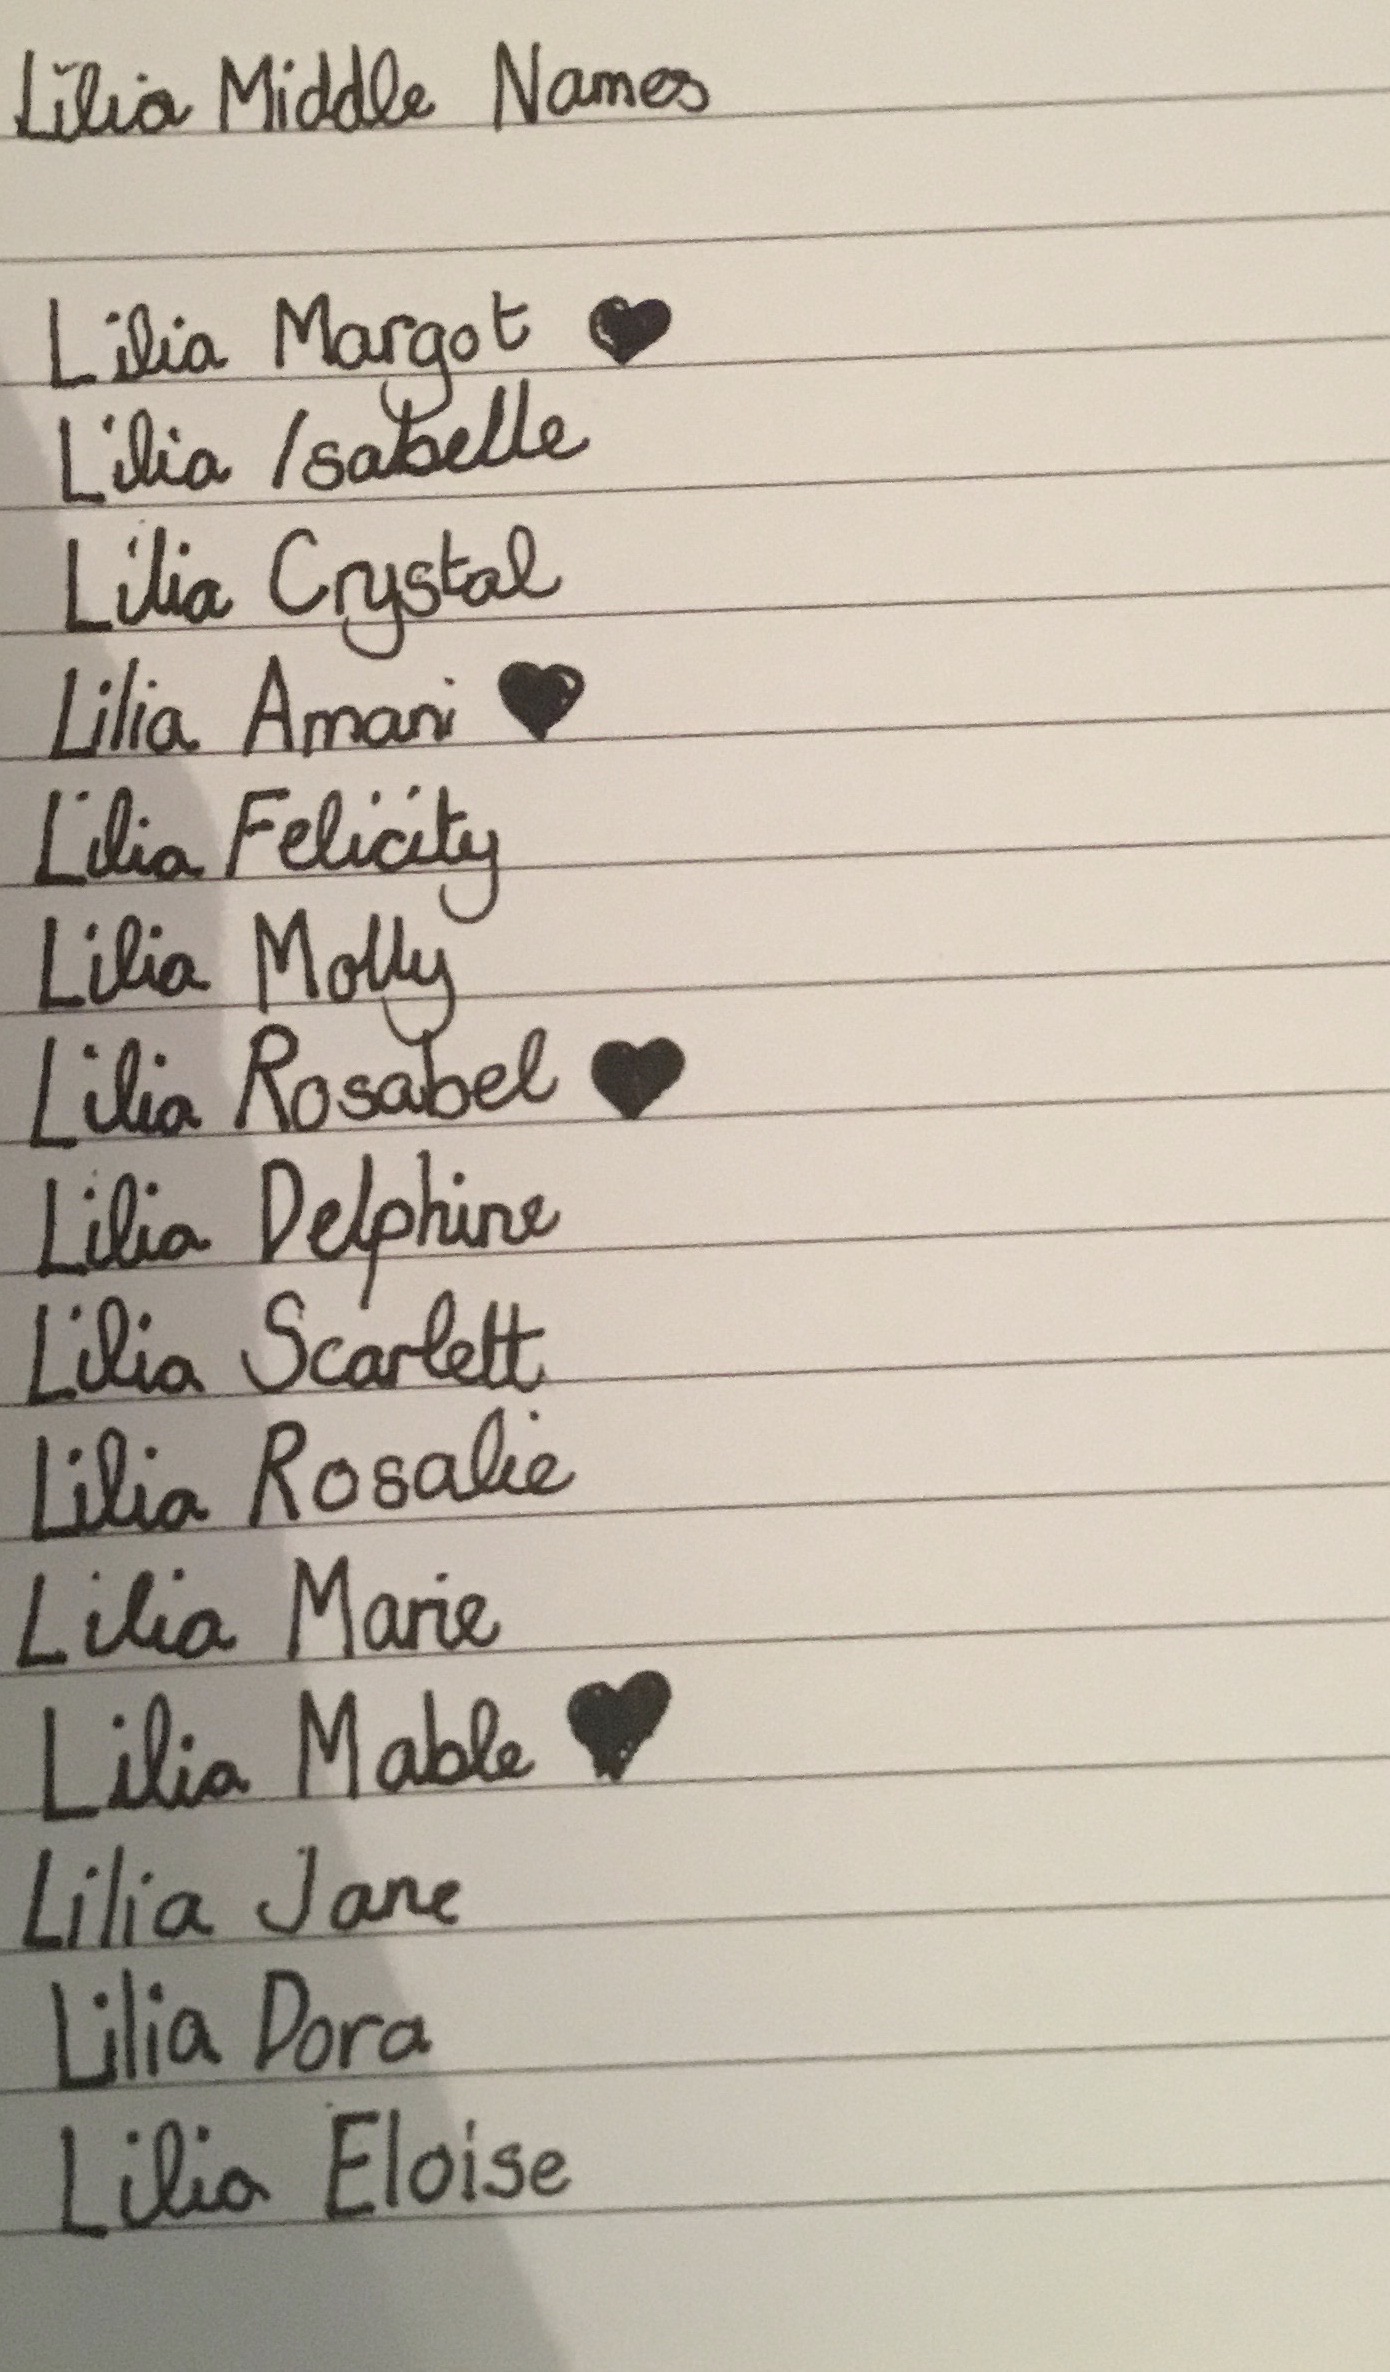 Lilia Middle Names
Lilia Margot ♥
Lilia Isabelle
Lilia Crystal
Lilia Amani ♥
Lilia Felicity
Lilia Molly
Lilia Rosabel ♥
Lilia Delphine
Lilia Scarlett
Lilia Rosalie
Lilia Marie
Lilia Mable ♥
Lilia Jane
Lilia Dora
Lilia Eloise